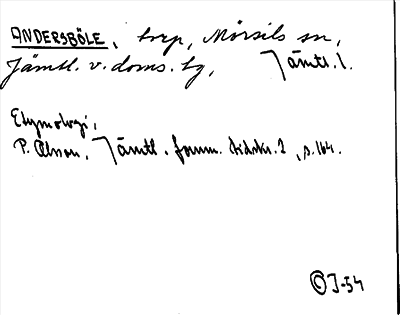 ANDERSBÖLE, torp, Mörsils sn,
Jämtl. v. doms. tg, Jämtl. l.
Etymologi,
P. Olsson, Jämtl. fornm. tidskr. 2, s. 164.
OJ-54